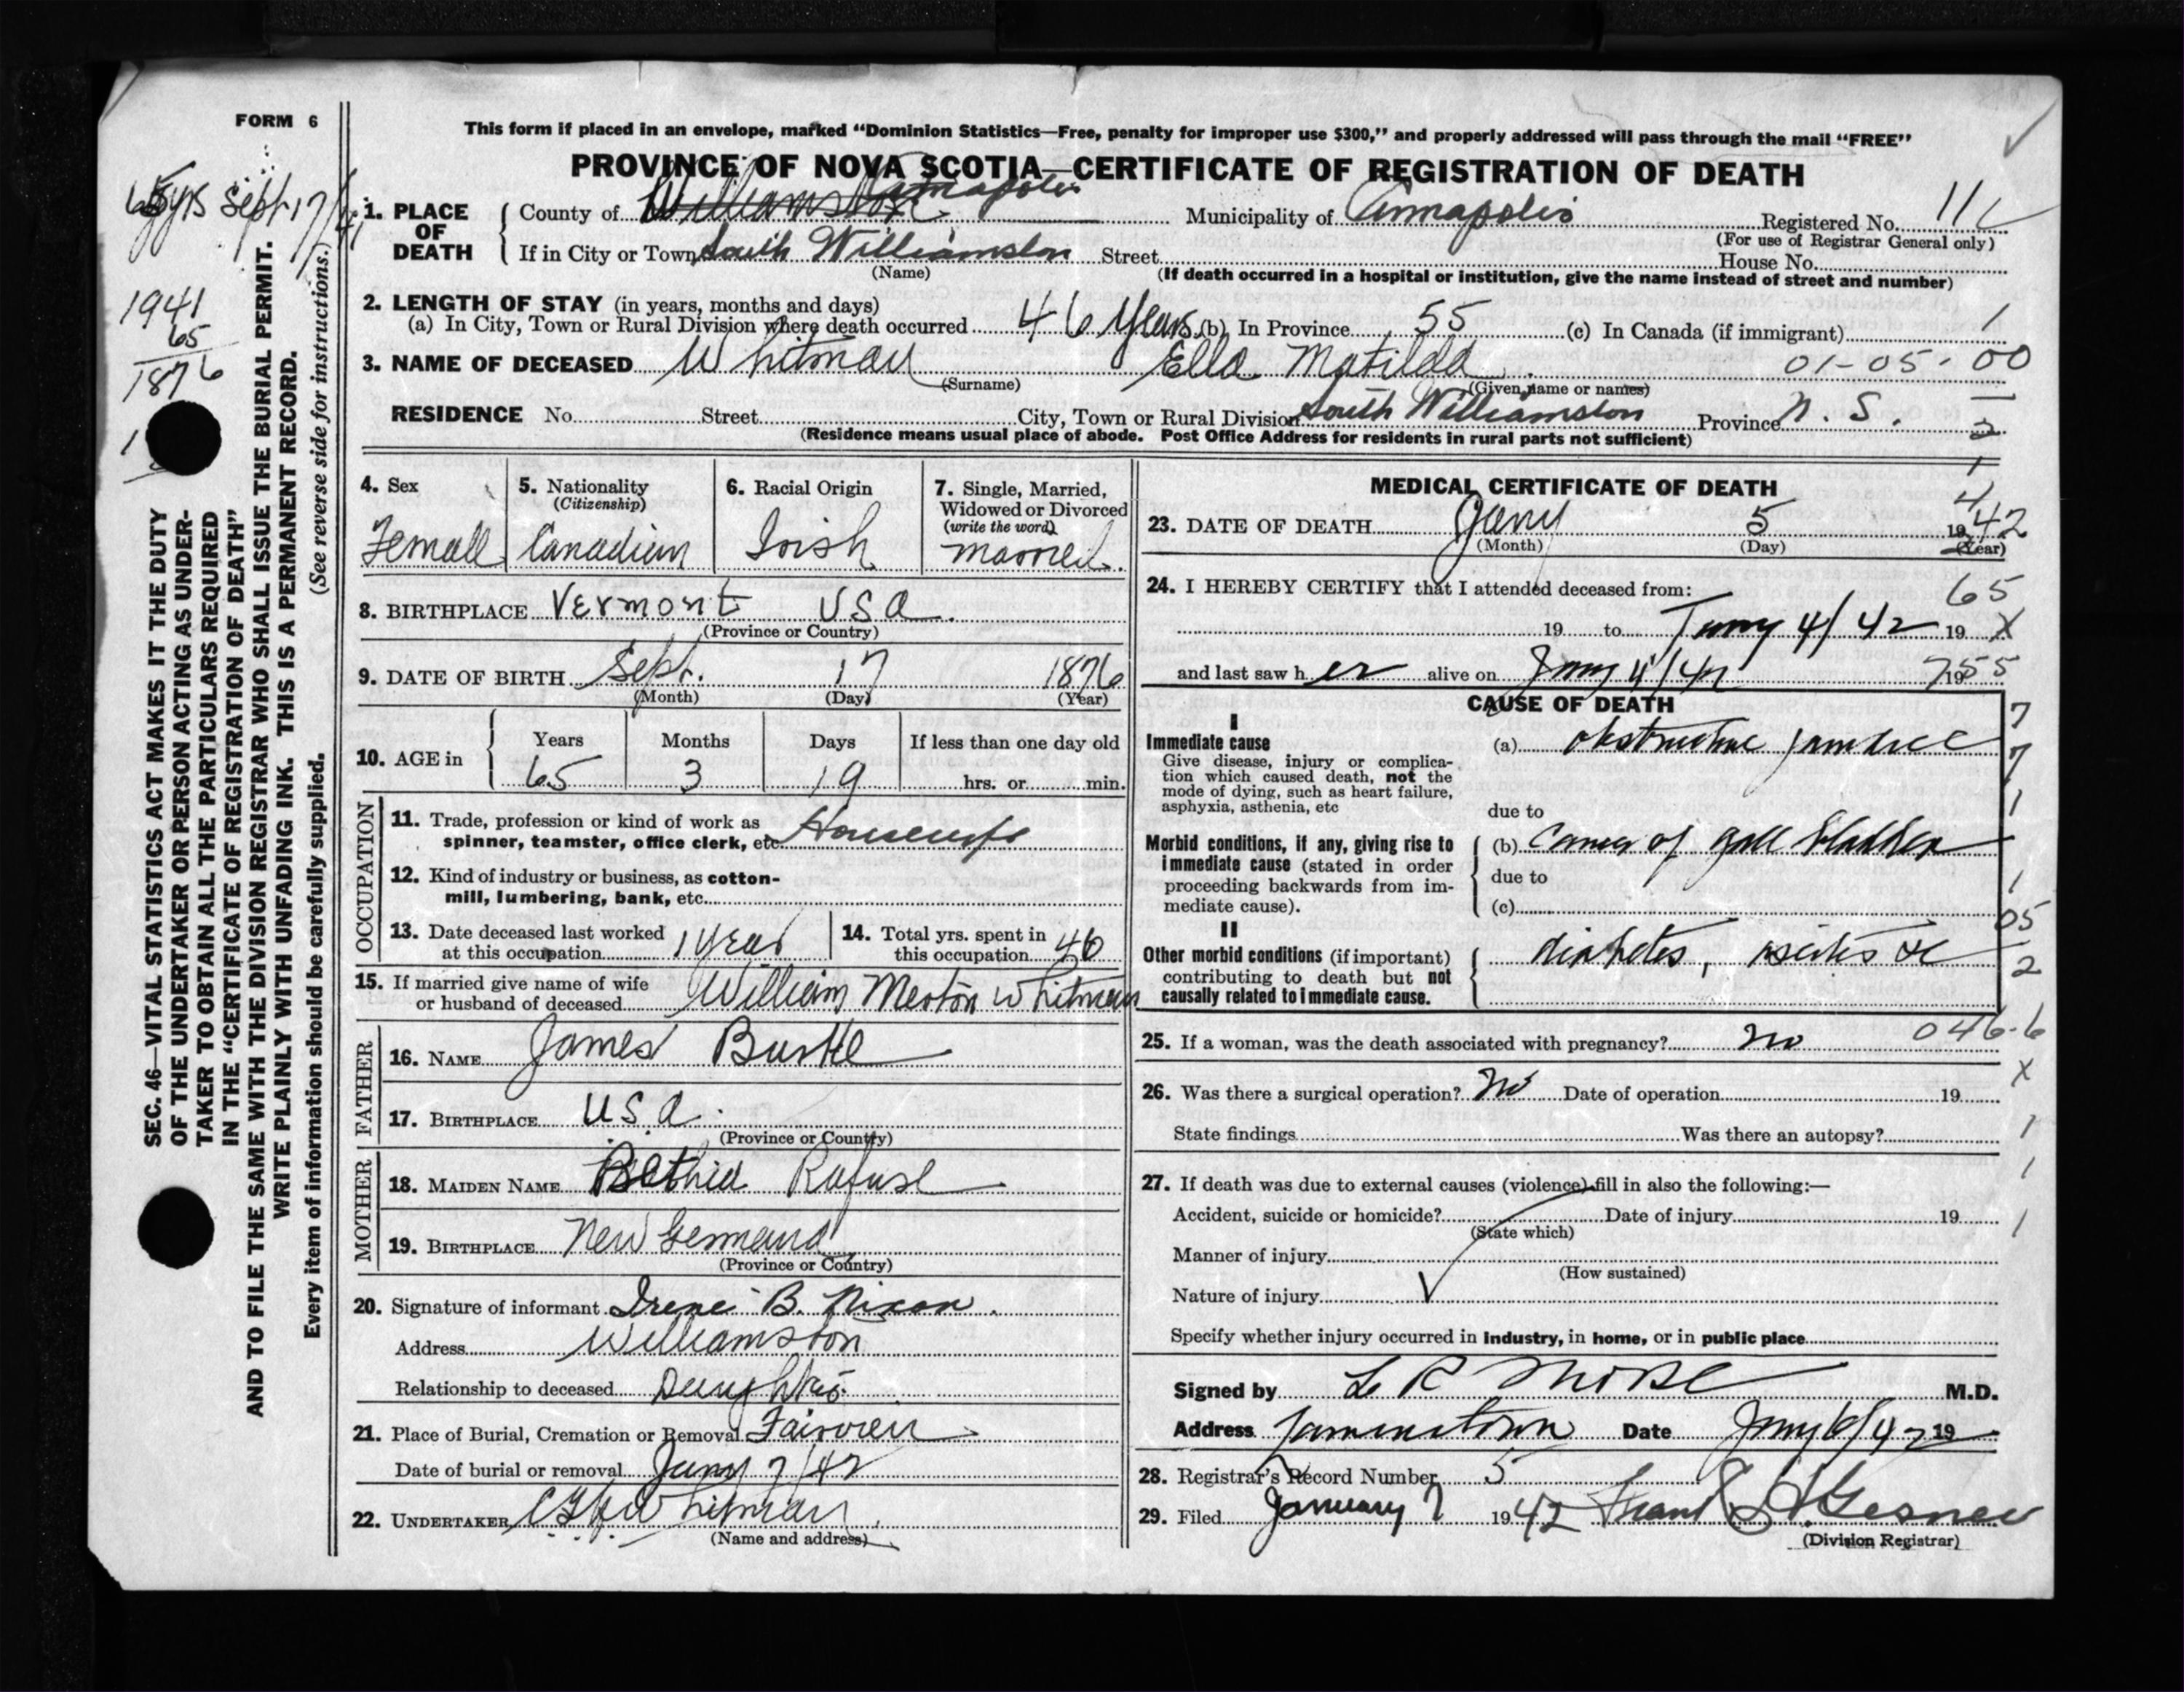 FORM 6
This form if placed in an envelope, marked "Dominion Statistics—Free, penalty for improper use $300," and properly addressed will pass through the mail "FREE"
PROVINCE OF NOVA SCOTIA—CERTIFICATE OF REGISTRATION OF DEATH
65 yrs Sept 17/41
1941
65
1876
SEC. 46—VITAL STATISTICS ACT MAKES IT THE DUTY
OF THE UNDERTAKER OR PERSON ACTING AS UNDER-
TAKER TO OBTAIN ALL THE PARTICULARS REQUIRED
IN THE "CERTIFICATE OF REGISTRATION OF DEATH"
AND TO FILE THE SAME WITH THE DIVISION REGISTRAR WHO SHALL ISSUE THE BURIAL PERMIT.
WRITE PLAINLY WITH UNFADING INK. THIS IS A PERMANENT RECORD.
Every item of information should be carefully supplied. (See reverse side for instructions.)
1. PLACE OF DEATH
County of Williamston Annapolis Municipality of Annapolis Registered No. 11
(For use of Registrar General only)
If in City or Town South Williamston Street House No.
(Name) (If death occurred in a hospital or institution, give the name instead of street and number)
2. LENGTH OF STAY (in years, months and days)
(a) In City, Town or Rural Division where death occurred 46 Years (b) In Province 55 (c) In Canada (if immigrant) 1
3. NAME OF DECEASED Whitman Ella Matilda 01-05-00
(Surname) (Given name or names)
RESIDENCE No. Street City, Town or Rural Division South Williamston Province N. S.
(Residence means usual place of abode. Post Office Address for residents in rural parts not sufficient)
4. Sex
Female
5. Nationality
(Citizenship)
Canadian
6. Racial Origin
Irish
7. Single, Married,
Widowed or Divorced
(write the word)
married.
8. BIRTHPLACE Vermont USA.
(Province or Country)
9. DATE OF BIRTH Sept. 17 1876
(Month) (Day) (Year)
10. AGE in
Years Months Days If less than one day old
65 3 19 hrs. or min.
OCCUPATION
11. Trade, profession or kind of work as
spinner, teamster, office clerk, etc. Housewife
12. Kind of industry or business, as cotton-
mill, lumbering, bank, etc.
13. Date deceased last worked
at this occupation 1 year
14. Total yrs. spent in
this occupation 46
15. If married give name of wife
or husband of deceased William Merton Whitman
FATHER
16. NAME James Burke
17. BIRTHPLACE U.S.A.
(Province or Country)
MOTHER
18. MAIDEN NAME Bethia Rafuse
19. BIRTHPLACE New Germany
(Province or Country)
20. Signature of informant Irene B. Nixon.
Address Williamston
Relationship to deceased Daughter.
21. Place of Burial, Cremation or Removal Fairview
Date of burial or removal Jany 7/42
22. UNDERTAKER Whitman
(Name and address)
MEDICAL CERTIFICATE OF DEATH
23. DATE OF DEATH Jany 5 1942
(Month) (Day) (Year)
24. I HEREBY CERTIFY that I attended deceased from: 65
19 to Jany 4/42 19 X
and last saw her alive on Jany 4/42 19 755
CAUSE OF DEATH
I
Immediate cause
Give disease, injury or complica-
tion which caused death, not the
mode of dying, such as heart failure,
asphyxia, asthenia, etc
(a) obstructive jaundice
due to
Morbid conditions, if any, giving rise to
immediate cause (stated in order
proceeding backwards from im-
mediate cause).
(b) Cancer of gall bladder
due to
(c)
II
Other morbid conditions (if important)
contributing to death but not
causally related to immediate cause.
diabetes, ascites &c
7
7
1
1
05
2
25. If a woman, was the death associated with pregnancy? no 046-6
X
26. Was there a surgical operation? No Date of operation 19
State findings Was there an autopsy? 1
27. If death was due to external causes (violence) fill in also the following:— 1
Accident, suicide or homicide? Date of injury 19 1
(State which)
Manner of injury
(How sustained)
Nature of injury
Specify whether injury occurred in industry, in home, or in public place
Signed by L R Morse M.D.
Address Lawrencetown Date Jany 6/42 19
28. Registrar's Record Number 5
29. Filed January 7 1942 Gesner
(Division Registrar)